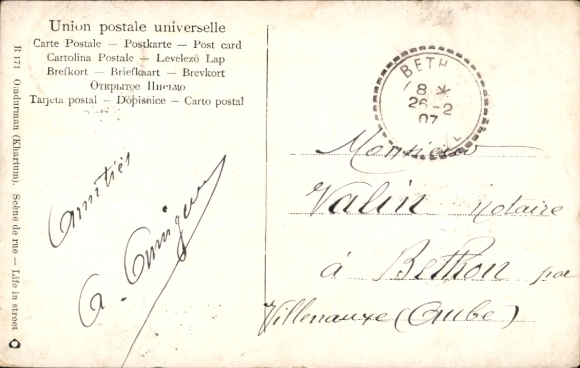 Union postale universelle
Carte Postale — Postkarte — Post card
Cartolina Postale — Levelezö Lap
Brefkort — Briefkaart — Brevkort
Открытое Письмо
Tarjeta postal — Dopisnice — Carto postal
R 171 Omdurman (Khartum). Scène de rue — Life in street
BETH
8 *
26-2
07
Amitiés
Monsieur
Valin notaire
à Bethon par
Villenauxe (Aube)